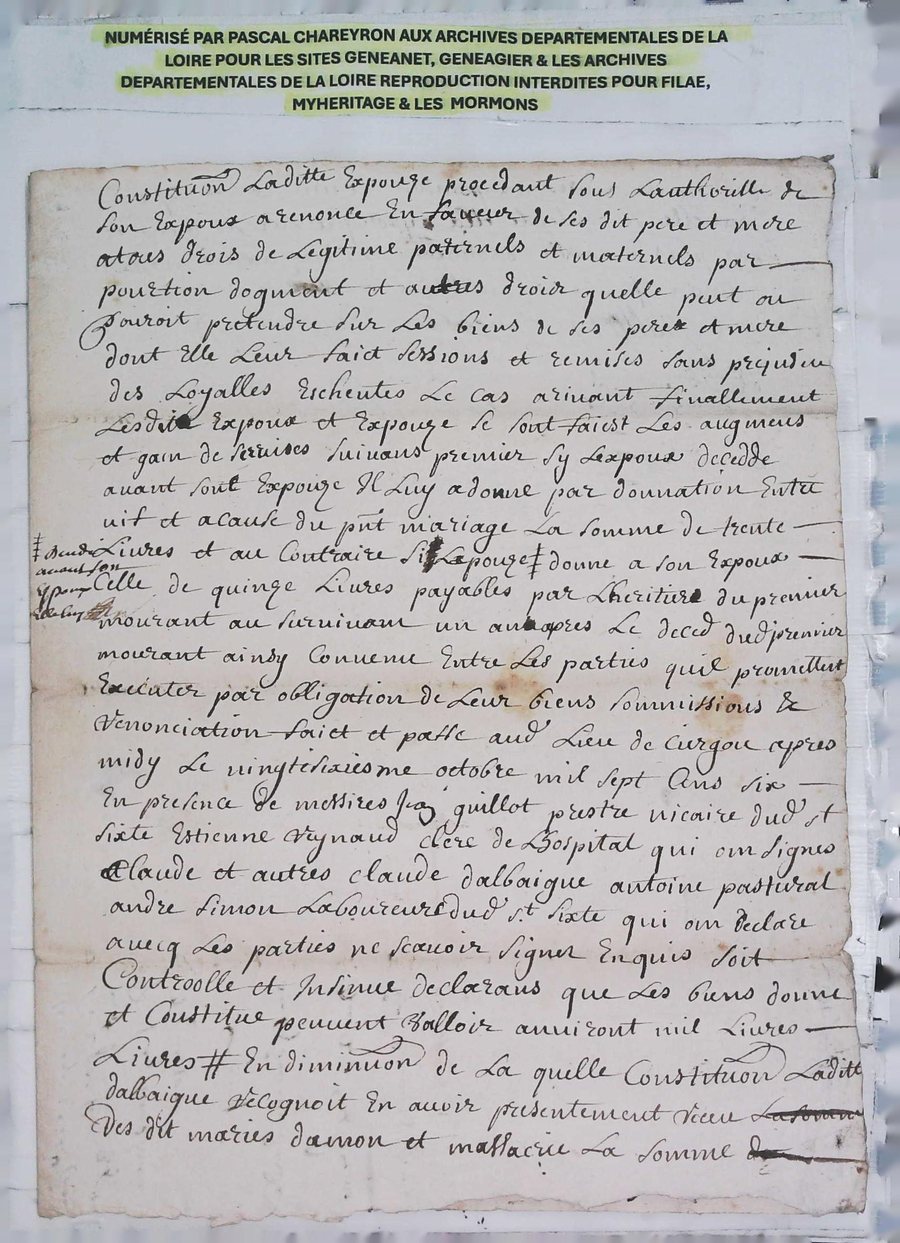 NUMÉRISÉ PAR PASCAL CHAREYRON AUX ARCHIVES DEPARTEMENTALES DE LA
LOIRE POUR LES SITES GENEANET, GENEAGIER & LES ARCHIVES
DEPARTEMENTALES DE LA LOIRE REPRODUCTION INTERDITES POUR FILAE,
MYHERITAGE & LES MORMONS
Constituon Laditte Expouze procedant sous Lauthoritte de
son Expoux a renonce En faueur de ses dit pere et mere
atous drois de Legitime paternels et maternels par
pourtion dogment et autres droix quelle peut ou
pouroit pretendre sur Les biens de ses peres et mere
dont Elle Leur faict sessions et remises sans prejudice
des Loyalles Escheutes Le cas ariuant finallement
Lesdits Expoux et Expouze se sont faiest Les augmens
et gain de seruises suiuans premier sy Lexpoux decedde
auant sont Expouze Il Luy a donne par donnation Entre
uif et a cause du pnt mariage La somme de trente
Liures et au Contraire si Lepouze ǂ donne a son Expoux
ǂ
auant son
Celle de quinze Liures payables par Lheritier du premier
mourant au suruiuant un an apres Le deced dud premier
mourant ainsy Conuenu Entre Les parties quil promettent
Executer par obligation de Leur biens sommissions &
renonciation faict et passe aud Lieu de Curgou apres
midy Le uingtsixiesme octobre mil sept Cens six
En presence de messires Jean guillot prestre uicaire dud st
sixte Estienne reynaud clerc de Lhospital qui on signes
Claude et autres claude dalbaigue antoine pastural
andre simon Laboureurs dud st sixte qui on declare
auecq Les parties ne scauoir signer Enquis soit
Controolle et Insinue declarans que Les biens donne
et Constitue peuuent Valloir enuiront mil Liures
Liures # En diminuon de La quelle Constituon Laditt
dalbaigue recognoit En auoir presentement receu La somme
des dit maries damon et massacrie La somme de